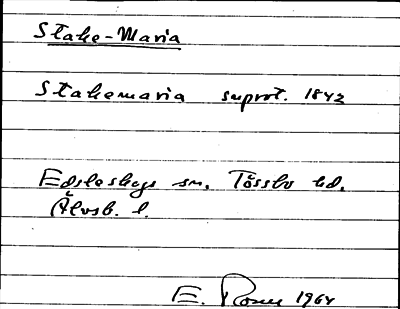 Stake-Maria
Stakemaria suprot. 1842
Edsleskogs sn. Tössbo hd.
Älvsb. l.
E. Rosen 1964